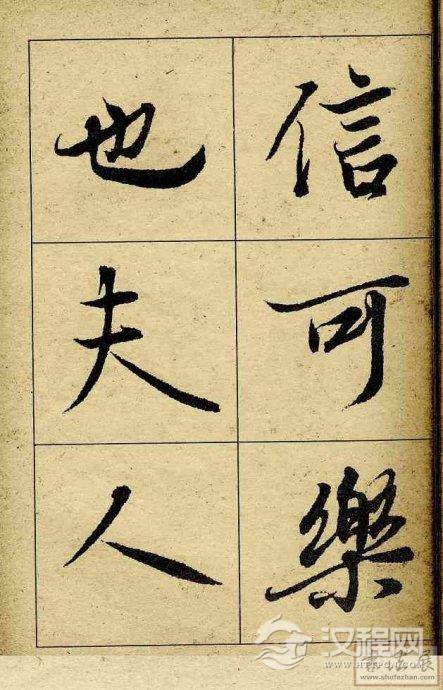 信可樂
也夫人
汉程网
www.shufazhan.com